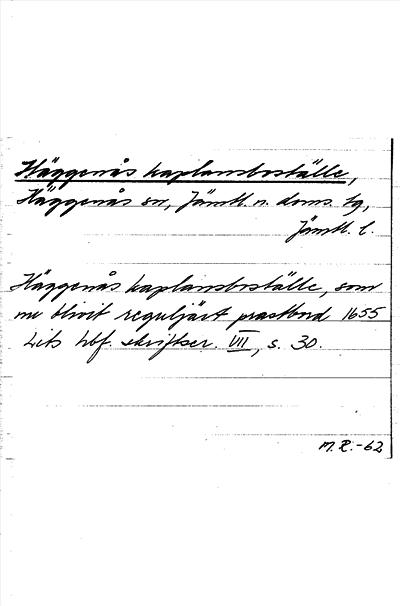 Häggenås kaplansboställe,
Häggenås sn, Jämtl. n. doms. tg,
Jämtl. l.
Häggenås kaplansboställe, som
nu blivit reguljärt prästbord 1655
Lits hbf. skrifter. VIII, s. 30.
M.R.-62